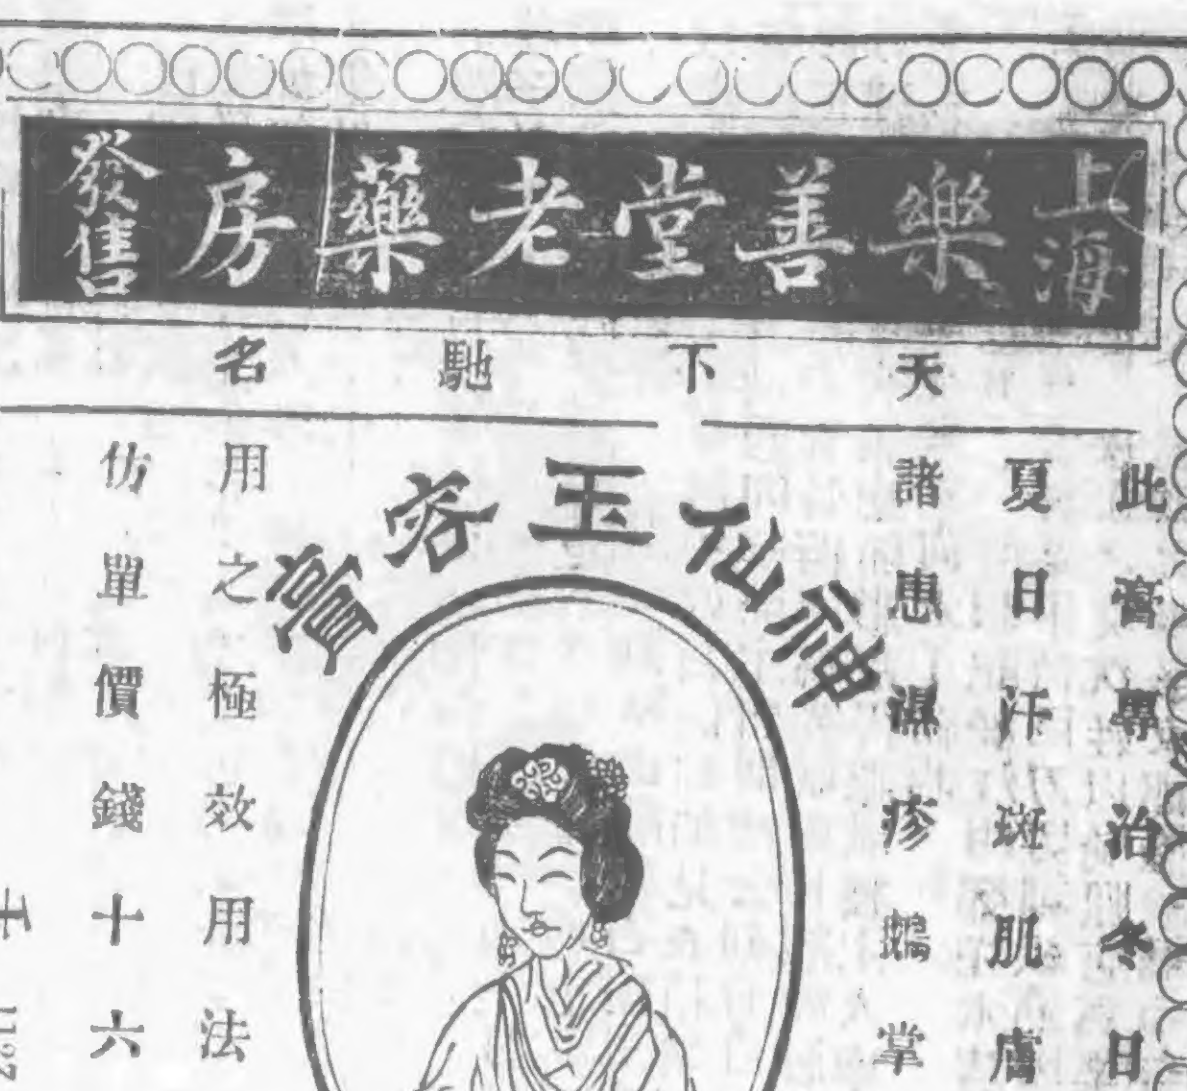 上海樂善堂老藥房發售
天下馳名
神仙玉容膏
此膏專治冬日
夏日汗斑肌膚
諸患濕疹鵝掌
用之極效用法
仿單價錢十六